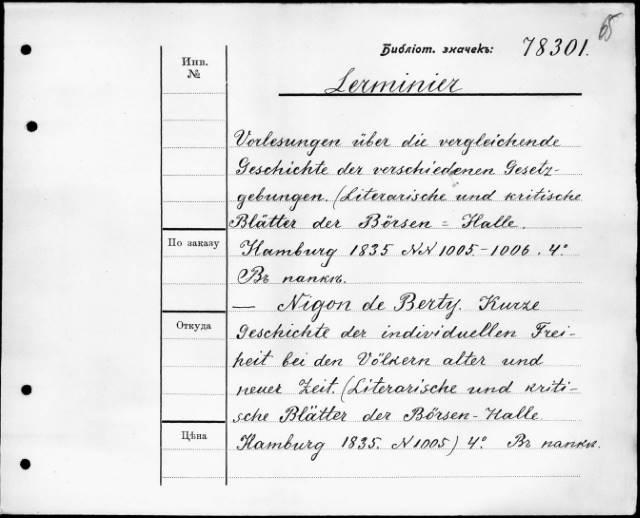 65
Библіот. значекъ: 78301.
Инв.
№
Lerminier
Vorlesungen über die vergleichende
Geschichte der verschiedenen Gesetz-
gebungen. (Literarische und kritische
Blätter der Börsen = Halle.
По заказу
Hamburg 1835 NN 1005.-1006. 4°
Въ папкѣ.
— Nigon de Berty. Kurze
Откуда
Geschichte der individuellen Frei-
heit bei den Völkern alter und
neuer Zeit. (Literarische und kriti-
sche Blätter der Börsen-Halle
Цѣна
Hamburg 1835. N 1005) 4° Въ папкѣ.